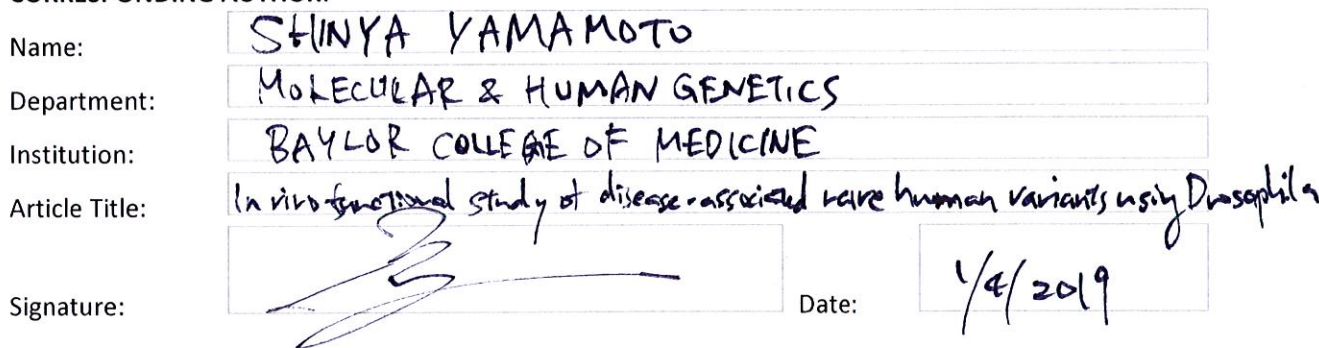 CORRESPONDING AUTHOR:
Name: SHINYA YAMAMOTO
Department: MOLECULAR & HUMAN GENETICS
Institution: BAYLOR COLLEGE OF MEDICINE
Article Title: In vivo functional study of disease-associated rare human variants using Drosophila
Signature: Date: 1/4/2019